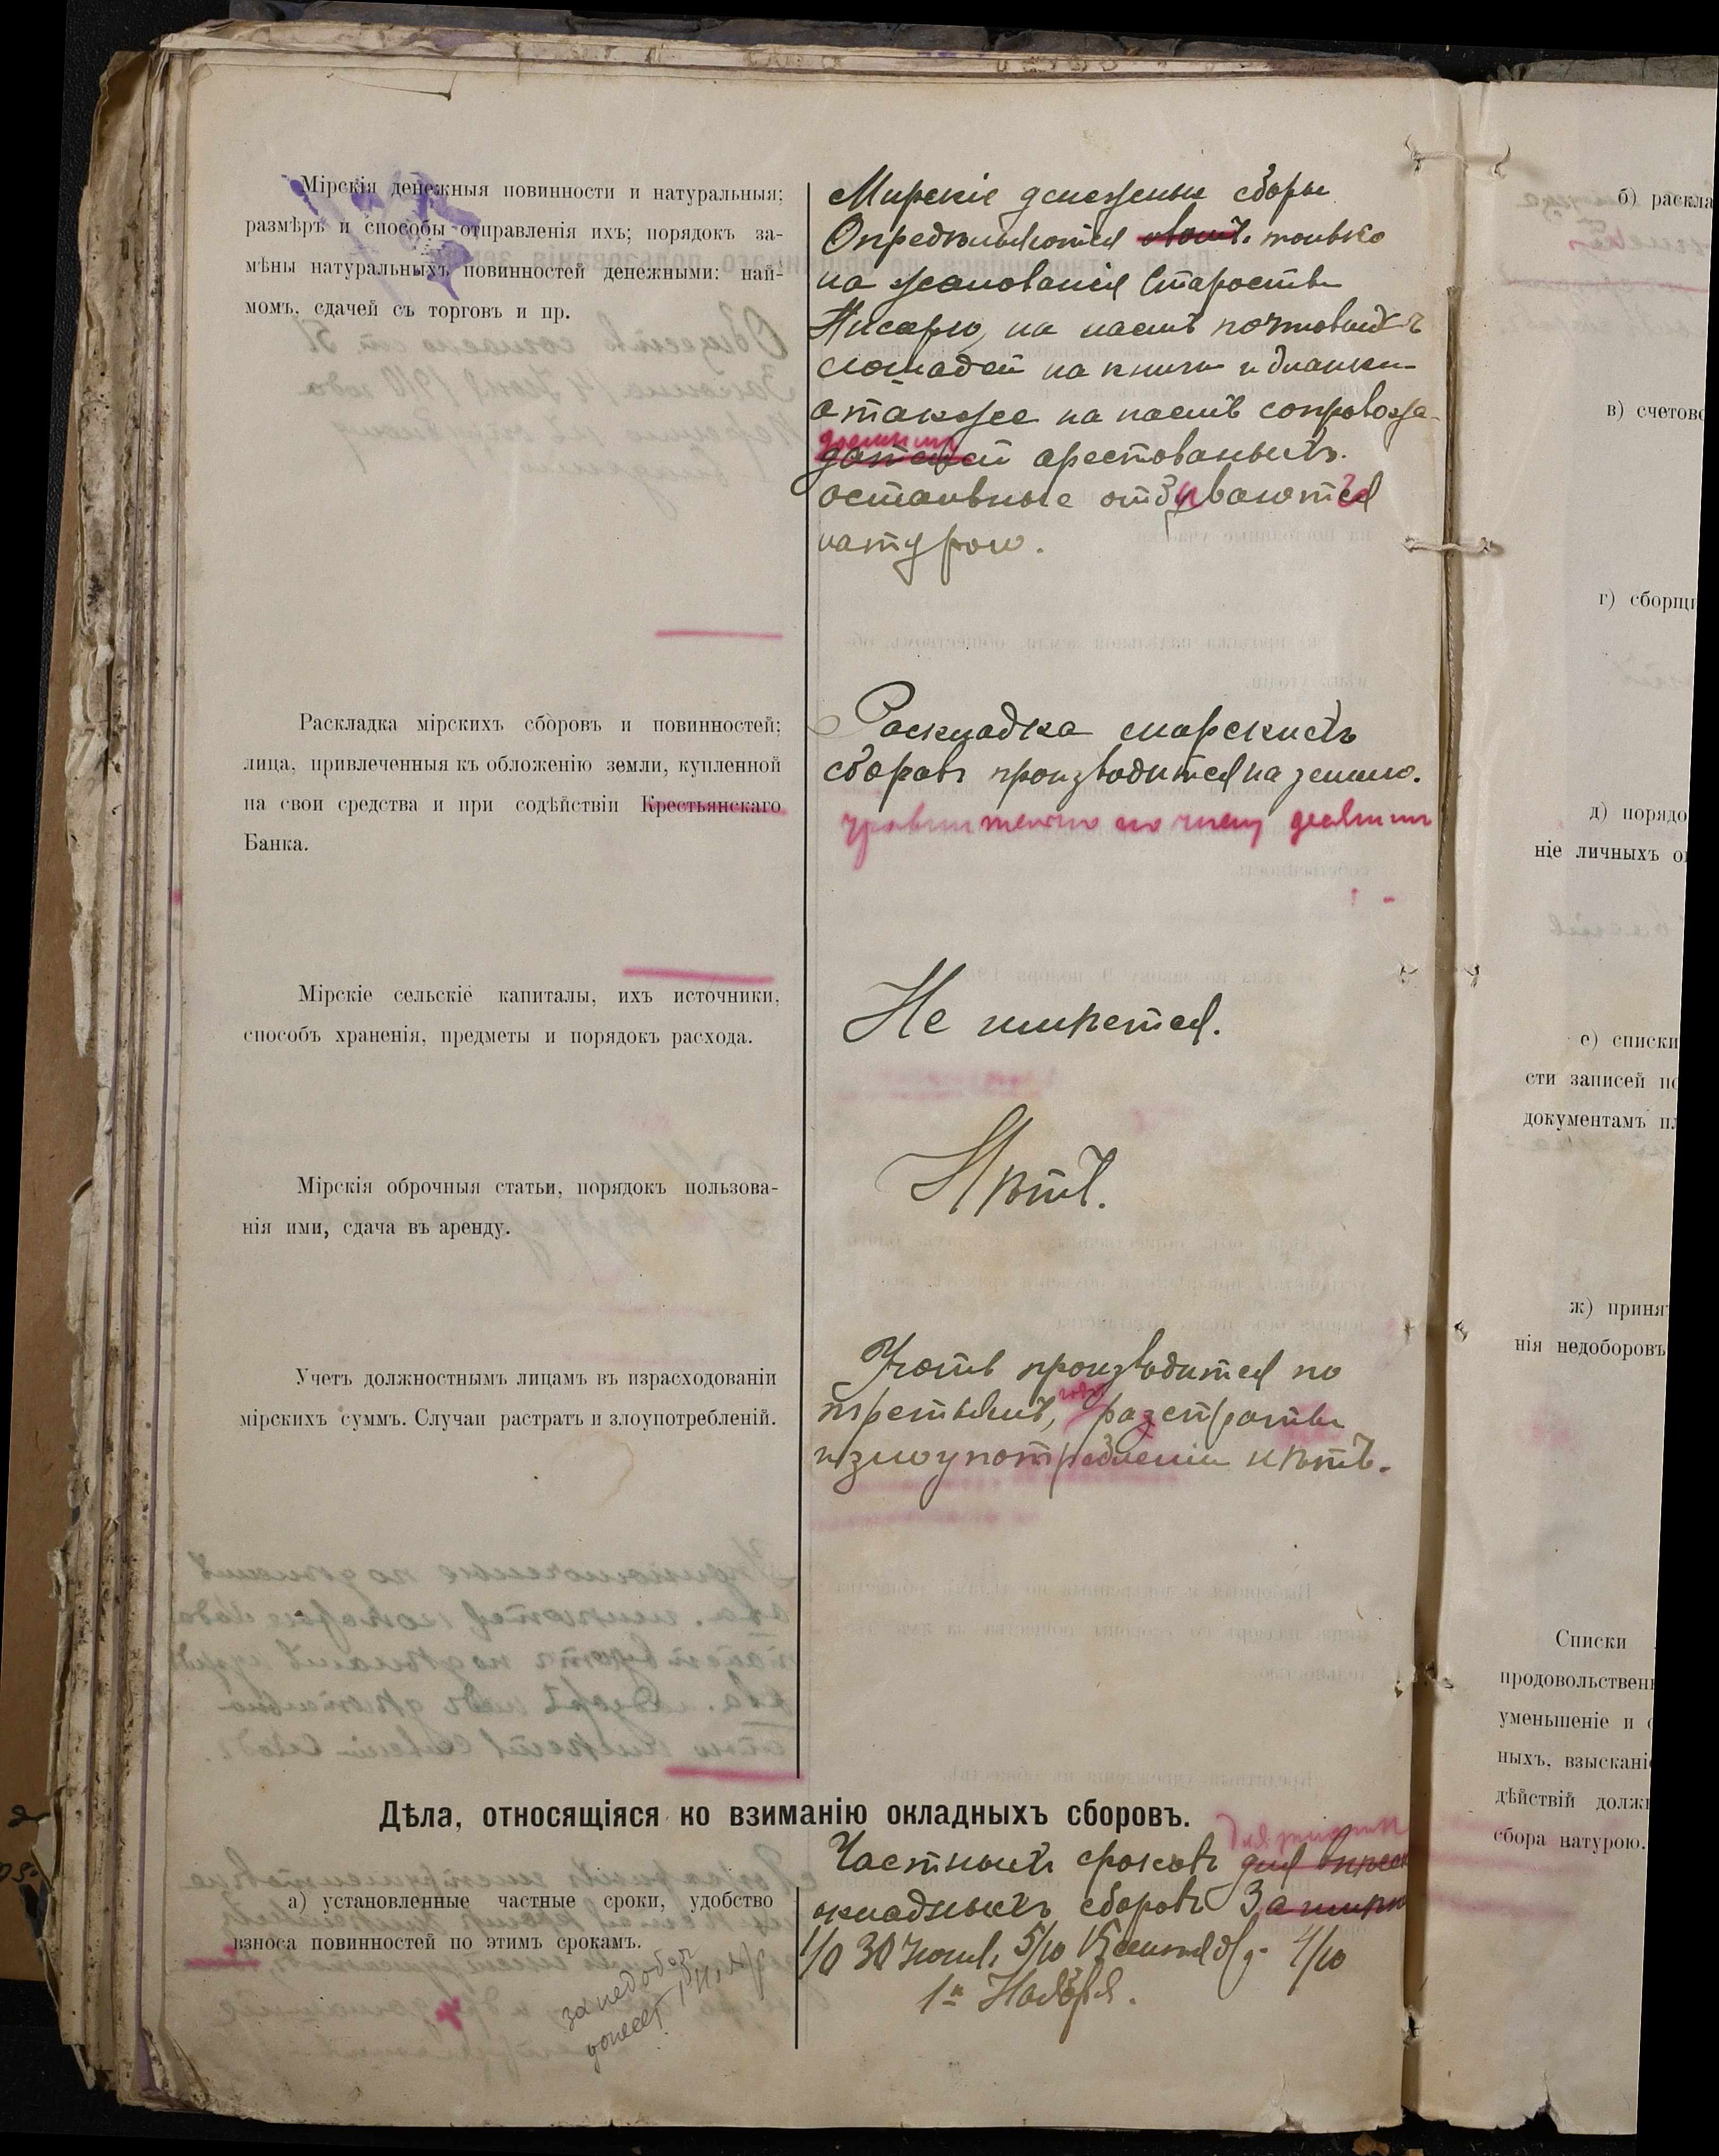 Мірскія денежныя повинности и натуральныя;
размѣръ и способы отправленія ихъ; порядокъ за-
мѣны натуральныхъ повинностей денежными: най-
момъ, сдачей съ торговъ и пр.
Мирскіе денежные сборы
Опредѣляются только
на жалованія Старостѣ
Писарю, на наемъ почтовыхъ
лошадей на книги и бланки
а также на наемъ сопровожа-
арестованыхъ.
остальные отбываются
натурою.
Раскладка мірскихъ сборовъ и повинностей;
лица, привлеченныя къ обложенію земли, купленной
на свои средства и при содѣйствіи Крестьянскаго
Банка.
Раскладка мирскихъ
сборовъ производится на землю.
уравнительно по числу десятинъ
Мірскіе сельскіе капиталы, ихъ источники,
способъ храненія, предметы и порядокъ расхода.
Не имѣется.
Мірскія оброчныя статьи, порядокъ пользова-
нія ими, сдача въ аренду.
Нѣтъ.
Учетъ должностнымъ лицамъ въ израсходованіи
мірскихъ суммъ. Случаи растратъ и злоупотребленій.
Учотъ производится по
третямъ, года разстраты
и злоупотребленіи нѣтъ.
Дѣла, относящіяся ко взиманію окладныхъ сборовъ.
а) установленные частные сроки, удобство
взноса повинностей по этимъ срокамъ.
Частныхъ сроковъ для
окладныхъ сборовъ
30 Іюня, 5/10 4/10
1н Ноября.
за недобор
донесет
б) раскла
в) счетово
г) сборщи
д) порядо
ніе личныхъ о
е) списки
сти записей по
документамъ пл
ж) приня
нія недоборовъ
Списки
продовольствен
уменьшеніе и
ныхъ, взыскані
дѣйствій долж
сбора натурою.